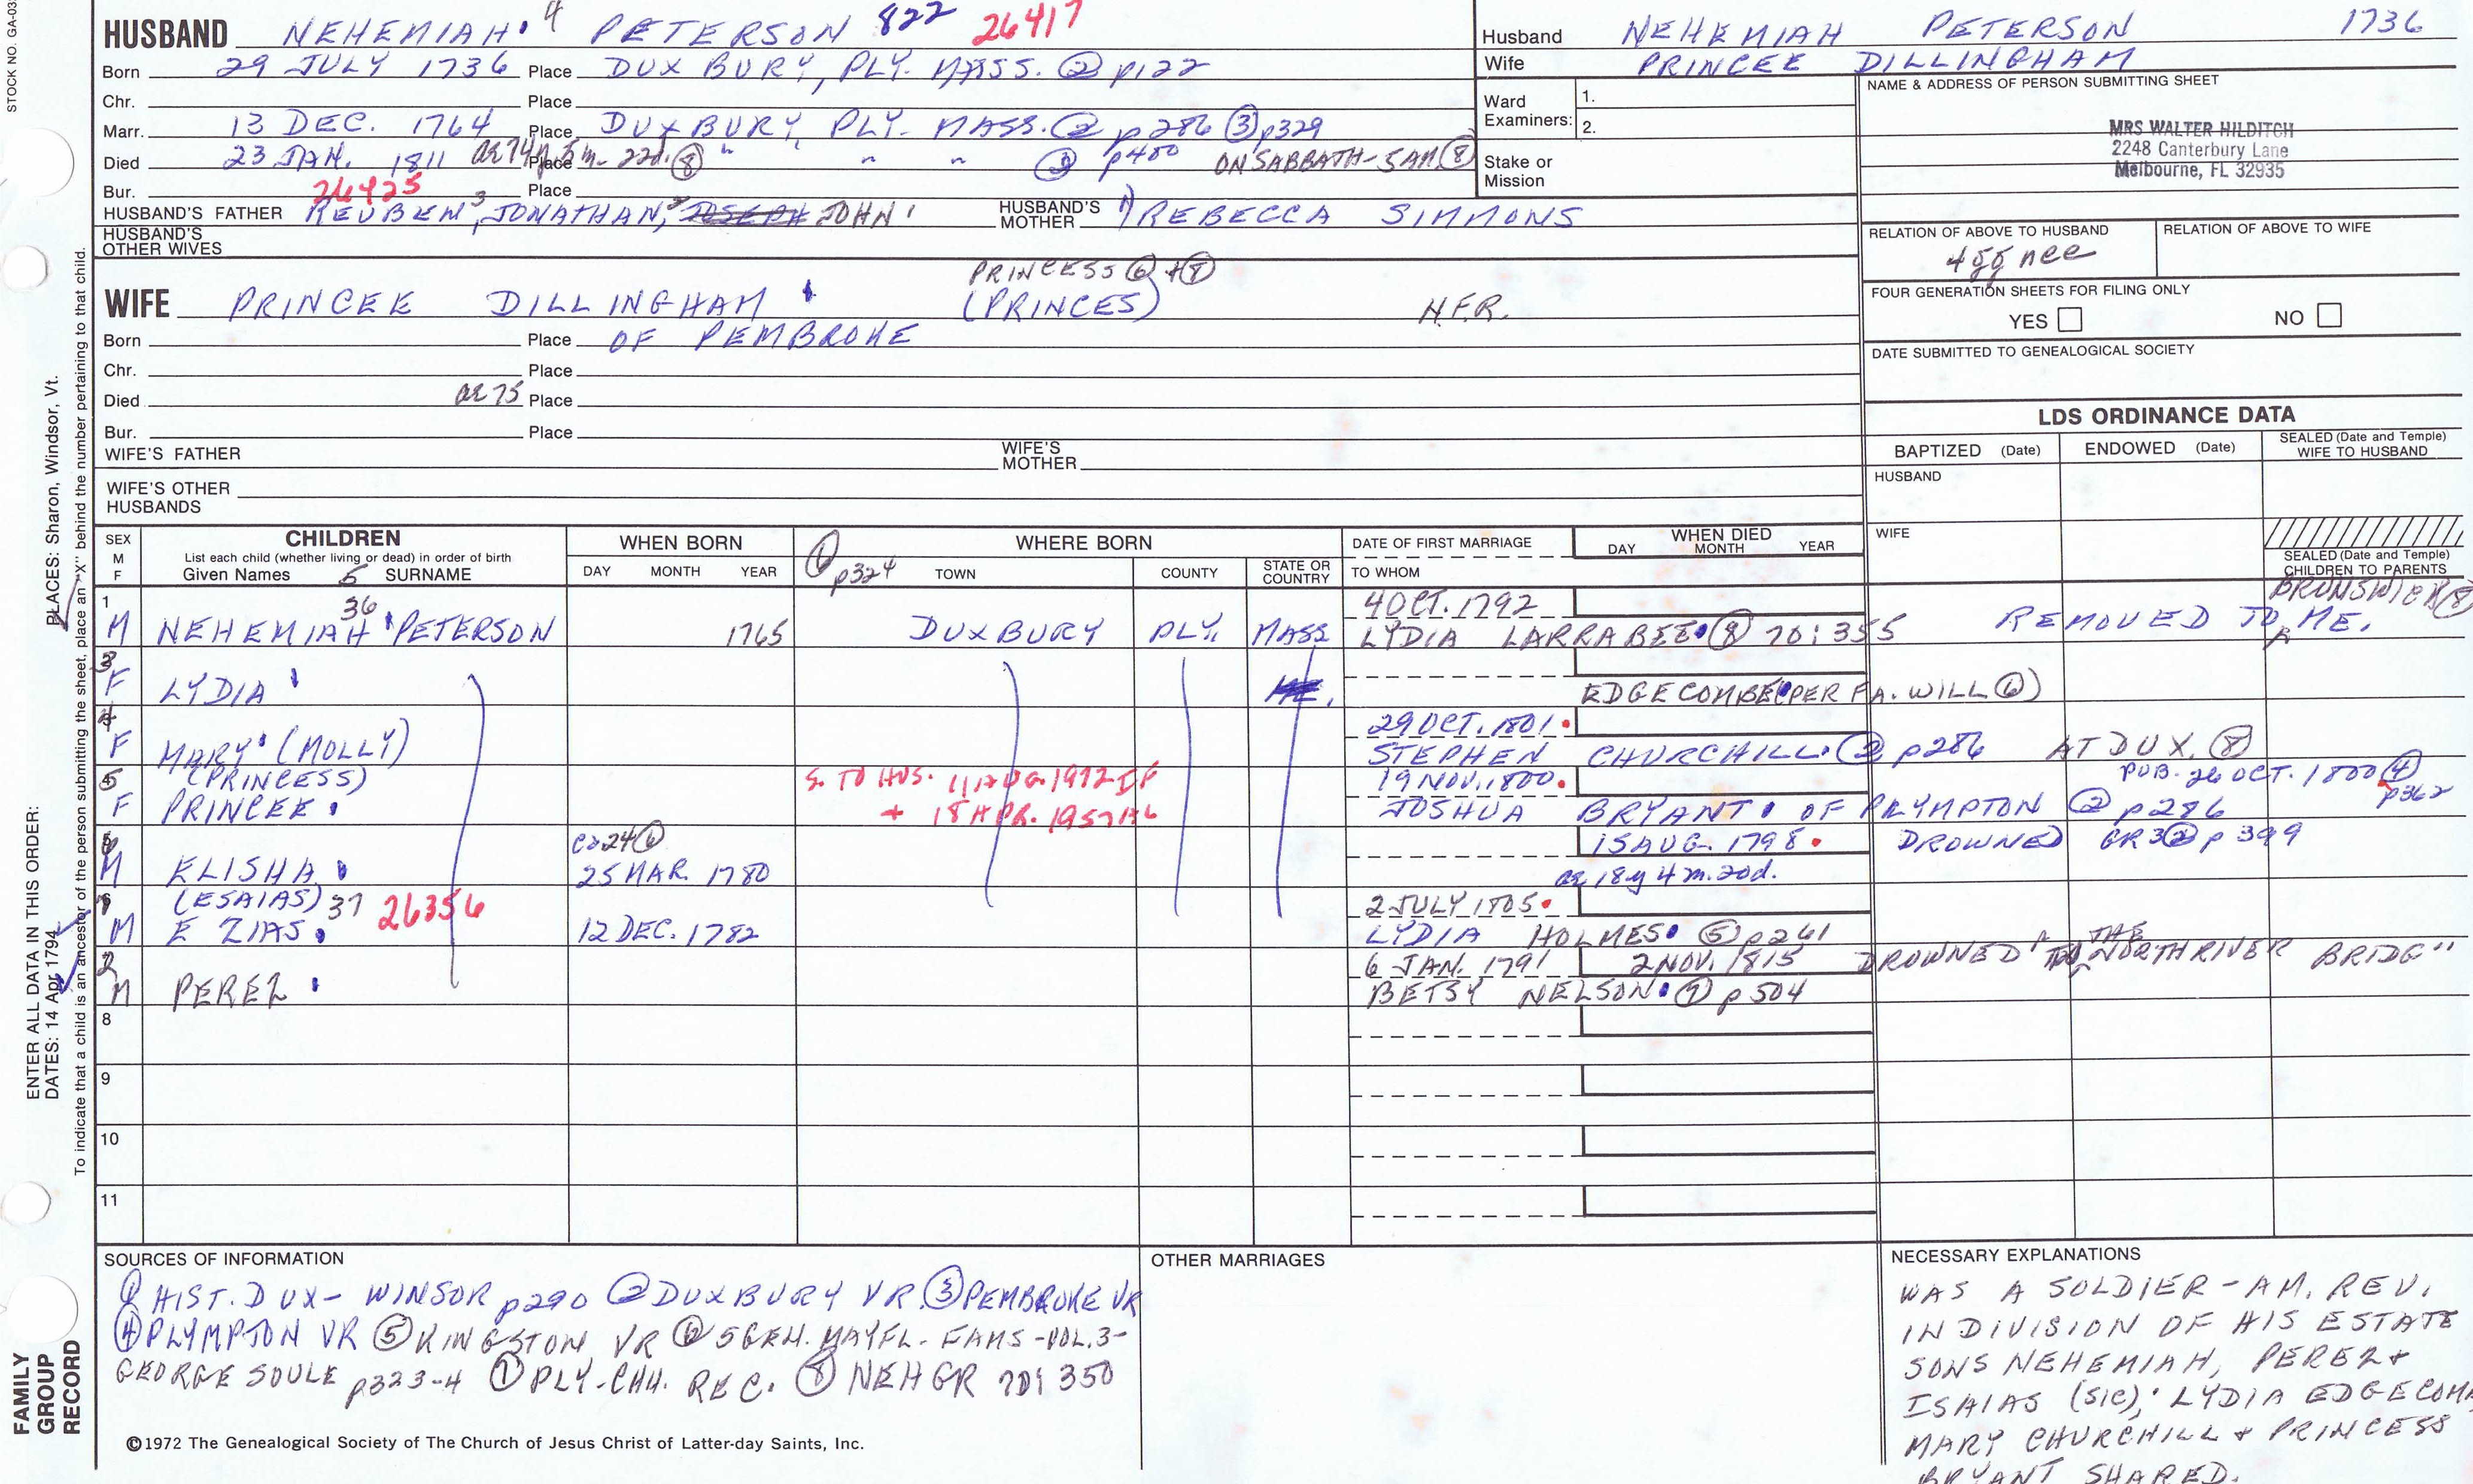 STOCK NO. GA-03
HUSBAND NEHEMIAH 4 PETERSON 822 26417
Born 29 JULY 1736 Place DUXBURY, PLY. MASS. ② p122
Chr. Place
Marr. 13 DEC. 1764 Place DUXBURY, PLY. MASS. ② p286 ③ p329
Died 23 JAN. 1811 ae 74y 5m 22d. ⑧ Place " " " " p400 ON SABBATH - 5 AM ⑧
Bur. 26425 Place
HUSBAND'S FATHER REUBEN 3, JONATHAN, 2 JOSEPH JOHN 1 HUSBAND'S MOTHER 1) REBECCA SIMMONS
HUSBAND'S OTHER WIVES
PRINCESS ⑥ + ⑧
WIFE PRINCEE DILLINGHAM (PRINCES) N.F.R.
Born Place OF PEMBROKE
Chr. Place
Died ae 75 Place
Bur. Place
WIFE'S FATHER WIFE'S MOTHER
WIFE'S OTHER HUSBANDS
Husband NEHEMIAH PETERSON 1736
Wife PRINCEE DILLINGHAM
Ward Examiners: 1. 2.
Stake or Mission
NAME & ADDRESS OF PERSON SUBMITTING SHEET
MRS WALTER HILDITCH
2248 Canterbury Lane
Melbourne, FL 32935
RELATION OF ABOVE TO HUSBAND RELATION OF ABOVE TO WIFE
4 gg nee
FOUR GENERATION SHEETS FOR FILING ONLY
YES NO
DATE SUBMITTED TO GENEALOGICAL SOCIETY
LDS ORDINANCE DATA
BAPTIZED (Date) ENDOWED (Date) SEALED (Date and Temple) WIFE TO HUSBAND
HUSBAND
WIFE
SEALED (Date and Temple) CHILDREN TO PARENTS
SEX M F CHILDREN List each child (whether living or dead) in order of birth Given Names 5 SURNAME
WHEN BORN DAY MONTH YEAR
① p324 WHERE BORN TOWN COUNTY STATE OR COUNTRY
DATE OF FIRST MARRIAGE TO WHOM
WHEN DIED DAY MONTH YEAR
36 4 OCT. 1792 BRUNSWICK ⑧
1 M NEHEMIAH PETERSON 1765 DUXBURY PLY. MASS LYDIA LARRABEE ⑧ 70:355 REMOVED TO ME.
3 F LYDIA ME. EDGECOMBE (PER FA. WILL ⑥)
29 OCT. 1801
4 F MARY (MOLLY) STEPHEN CHURCHILL ② p286 AT DUX. ⑧
(PRINCESS) S. TO HUS. 11 AUG. 1972 IF 19 NOV. 1800 PUB. 26 OCT. 1800 ④ p362
5 F PRINCEE + 18 APR. 1957 JOSHUA BRYANT OF PLYMPTON ② p286
ca 24 ⑥ 15 AUG. 1798 DROWNED GR3 ② p399
M ELISHA 25 MAR. 1780 ae 18y 4m. 20d.
(ESAIAS) 37 26356 2 JULY 1805
M EZIAS 12 DEC. 1782 LYDIA HOLMES ⑤ p261
6 JAN. 1791 2 NOV. 1815 DROWNED THE NORTH RIVER BRIDGE"
2 M PEREZ BETSY NELSON ⑦ p504
8
9
10
11
SOURCES OF INFORMATION
① HIST. DUX - WINSOR p290 ② DUXBURY VR ③ PEMBROKE VR
④ PLYMPTON VR ⑤ KINGSTON VR ⑥ 5 GEN. MAYFL. FAMS - VOL. 3 -
GEORGE SOULE p323-4 ⑦ PLY. CHH. REC. ⑧ NEHGR 70:350
OTHER MARRIAGES
NECESSARY EXPLANATIONS
WAS A SOLDIER - AM. REV.
IN DIVISION OF HIS ESTATE
SONS NEHEMIAH, PEREZ +
ISAIAS (SIC), LYDIA EDGECOM
MARY CHURCHILL + PRINCESS
BRYANT SHARED.
©1972 The Genealogical Society of The Church of Jesus Christ of Latter-day Saints, Inc.
FAMILY GROUP RECORD
ENTER ALL DATA IN THIS ORDER:
DATES: 14 Apr 1794
PLACES: Sharon, Windsor, Vt.
To indicate that a child is an ancestor of the person submitting the sheet, place an "X" behind the number pertaining to that child.